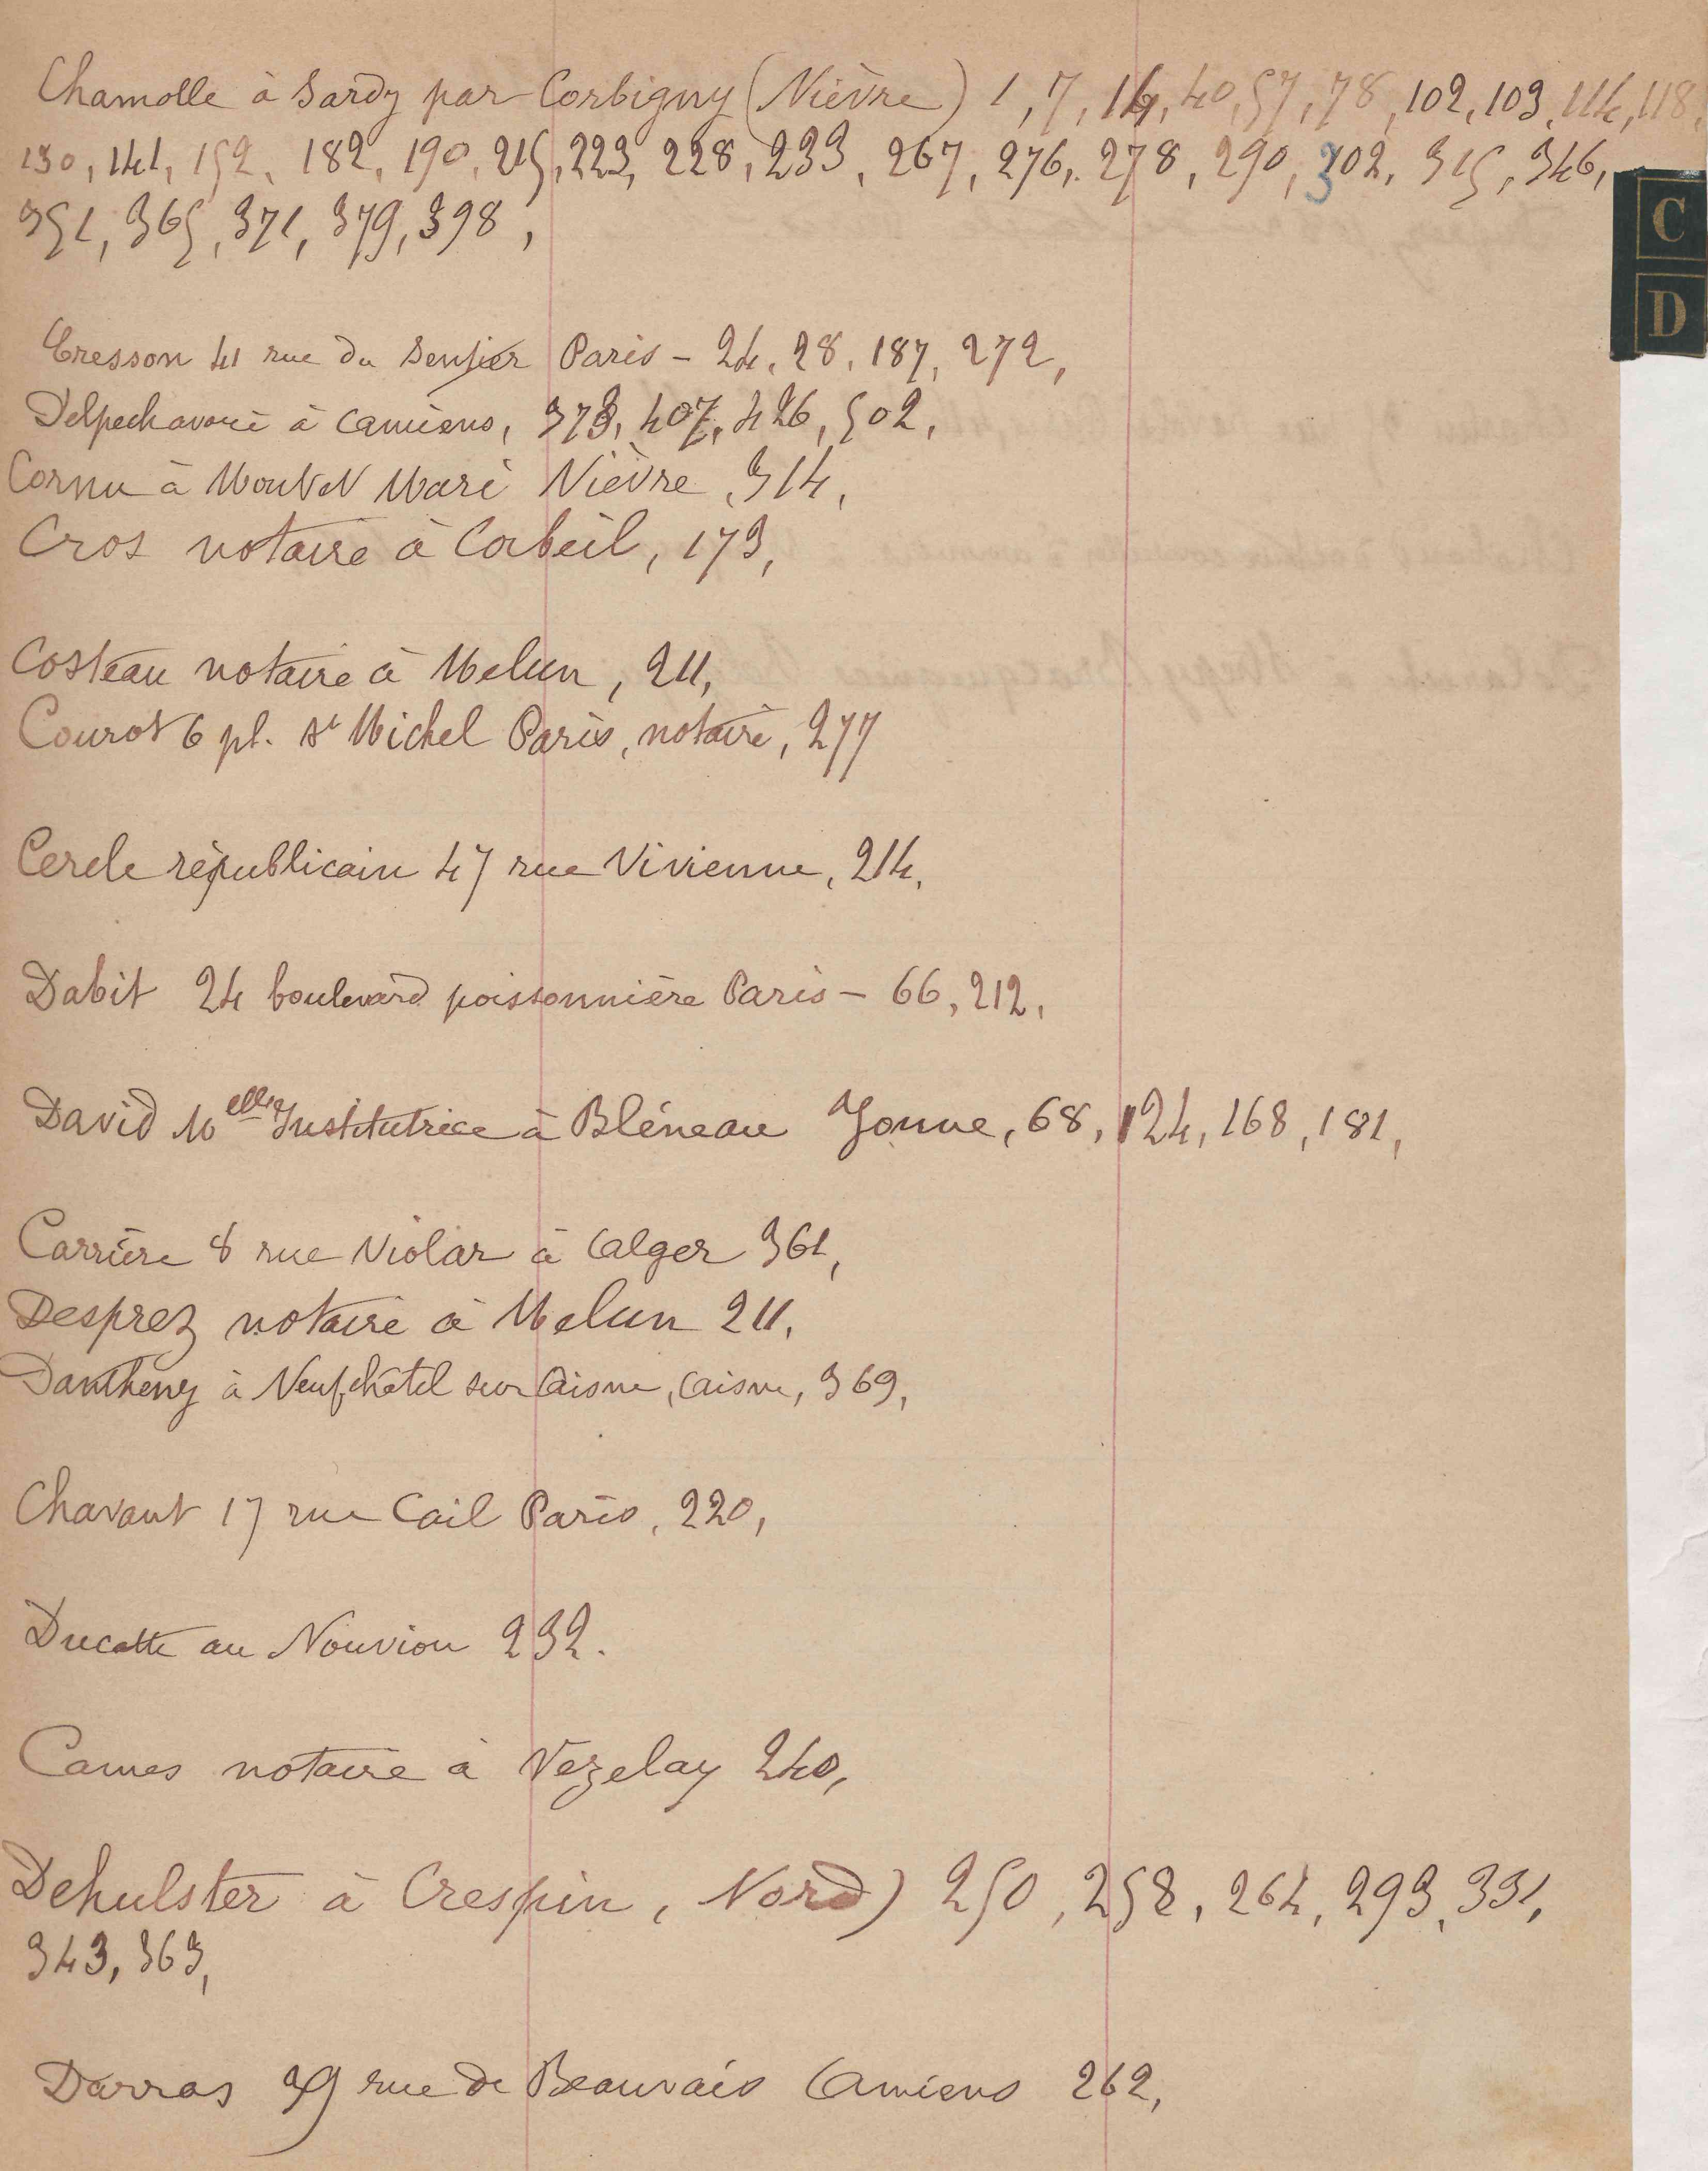 Chamolle à Sardy par Corbigny (Nièvre) 1, 7, 14, 40, 57, 78, 102, 103, 114, 118,
130, 141, 152, 182, 190, 215, 223, 228, 233, 267, 276, 278, 290, 302, 315, 346,
351, 365, 371, 379, 398,
C
D
Cresson 41 rue du Sentier Paris - 24, 28, 187, 272,
Delpech avoué à Amiens, 373, 407, 426, 502,
Cornu à Mont et Maré Nièvre, 314,
Cros notaire à Corbeil, 173,
Costeau notaire à Melun, 211,
Courot 6 pl. St Michel Paris, notaire, 277
Cercle républicain 47 rue Vivienne, 214,
Dabit 24 boulevard poissonnière Paris - 66, 212,
David Melle Institutrice à Bléneau Yonne, 68, 124, 168, 181,
Carrière 8 rue Violar à Alger 361,
Desprez notaire à Melun 211,
Dantheny à Neufchâtel sur Aisne, Aisne, 369,
Chavant 17 rue Cail Paris, 220,
Ducatte au Nouvion 232.
Cames notaire à Vezelay 240,
Dehulster à Crespin, Nord) 250, 258, 264, 293, 331,
343, 363,
Darras rue de Beauvais Amiens 262,